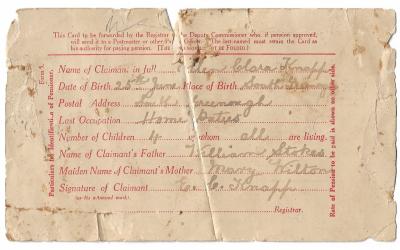 This Card to be forwarded by the Registrar Deputy Commissioner who, if pension approved,
will send it to a Postmaster or other Officer. The last-named must retain the Card as
his authority for paying pension. NOT BE FOLDED.)
Name of Claimant, in full Ellen Clara Knapp
Date of Birth 25th June Place of Birth South
Postal Address South Greenough
Last Occupation Home Duties
Number of Children 4 whom all are living.
Name of Claimant's Father William Stokes
Maiden Name of Claimant's Mother Mary Hilton
Signature of Claimant E. C. Knapp
(or his witnessed mark)
Registrar.
Particulars for Identification of Pensioner.
Rate of Pension to be paid is shown on other side.